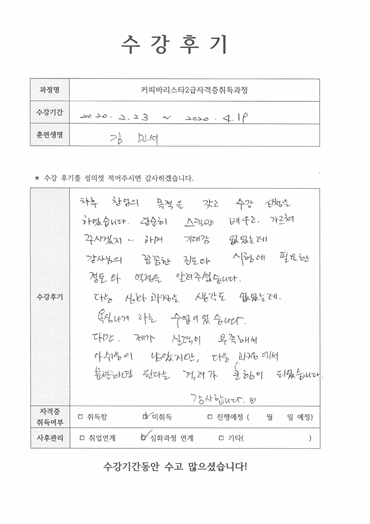 수강후기
과정명 커피바리스타2급자격증취득과정
수강기간 2020. 2. 23 ~ 2020. 4. 19
훈련생명 김 민서
★ 수강 후기를 성의껏 적어주시면 감사하겠습니다.
수강후기
차후 창업의 목적을 갖고 수강 신청을
하였습니다. 단순히 스킬만 배우고, 가르쳐
주시겠지~ 하며 기대감 없었는데
강사님의 꼼꼼한 진도와 시험에 필요한
정보와 역점을 알려주셨습니다.
다음 심화과정은 생각도 없었는데.
욕심나게 하는 수업이었습니다.
다만. 제가 실력이 부족해서
아쉬움이 남았지만, 다음 과정에서
보완하면 된다는 격려가 큰 힘이 되었습니다.
감사합니다.
자격증
취득여부 □ 취득함 ☑ 미취득 □ 진행예정 ( 월 일 예정)
사후관리 □ 취업연계 ☑ 심화과정 연계 □ 기타( )
수강기간동안 수고 많으셨습니다!